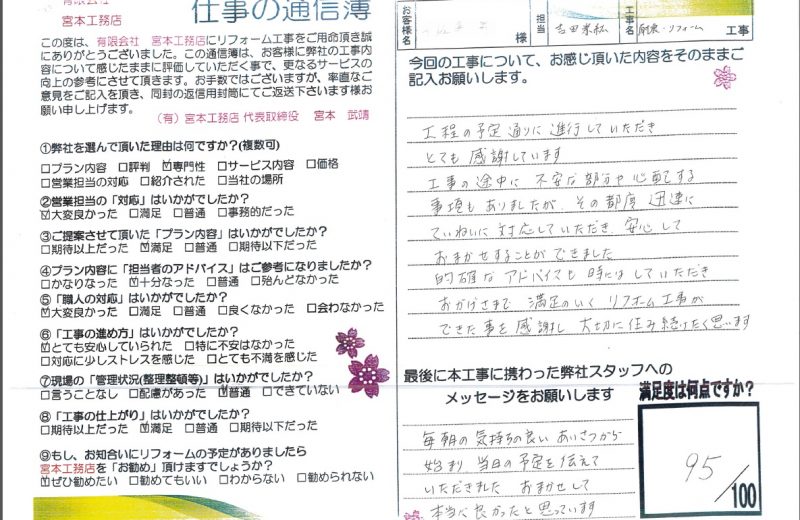 有限会社
宮本工務店
仕事の通信簿
この度は、有限会社 宮本工務店にリフォーム工事をご用命頂き誠
にありがとうございました。この通信簿は、お客様に弊社の工事内
容について感じたままに評価していただく事で、更なるサービスの
向上の参考にさせて頂きます。お手数ではございますが、率直なご
意見をご記入を頂き、同封の返信用封筒にてご返送下さいます様お
願い申し上げます。
(有)宮本工務店 代表取締役 宮本 武靖
①弊社を選んで頂いた理由は何ですか?(複数可)
□プラン内容 □評判 ☑専門性 □サービス内容 □価格
□営業担当の対応 □紹介された □当社の場所
②営業担当の「対応」はいかがでしたか?
☑大変良かった □満足 □普通 □事務的だった
③ご提案させて頂いた「プラン内容」はいかがでしたか?
□期待以上だった ☑満足 □普通 □期待以下だった
④プラン内容に「担当者のアドバイス」はご参考になりましたか?
□かなりなった ☑十分なった □普通 □殆んどなかった
⑤「職人の対応」はいかがでしたか?
☑大変良かった □満足 □普通 □良くなかった □会わなかった
⑥「工事の進め方」はいかがでしたか?
☑とても安心していられた □特に不安はなかった
□対応に少しストレスを感じた □とても不満を感じた
⑦現場の「管理状況(整理整頓等)」はいかがでしたか?
□言うことなし □配慮があった ☑普通 □できていない
⑧「工事の仕上がり」はいかがでしたか?
□期待以上だった ☑満足 □普通 □期待以下だった
⑨もし、お知合いにリフォームの予定がありましたら
宮本工務店を「お勧め」頂けますでしょうか?
☑ぜひ勧めたい □勧めてもいい □わからない □勧められない
お客様名 様 担当 吉田 工事名 リフォーム 工事
今回の工事について、お感じ頂いた内容をそのままご
記入お願いします。
工程の予定通りに進行していただき
とても感謝しています
工事の途中に 不安な部分や心配する
事項もありましたが その都度 迅速に
ていねいに対応していただき 安心して
おまかせすることができました
的確なアドバイスも時にはしていただき
おかげさまで 満足のいく リフォーム工事が
できた事を感謝し 大切に住み続けたく思います
最後に本工事に携わった弊社スタッフへの
メッセージをお願いします
毎朝の気持ちの良い あいさつから
始まり 当日の予定を伝えて
いただきました おまかせして
本当に良かったと思っています
満足度は何点ですか?
95/100